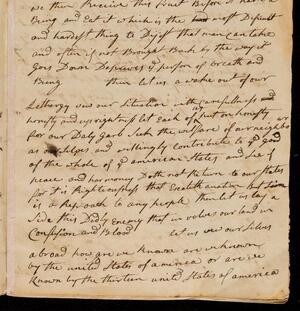 we then Receive this fruit Before it hath a
Being and Eat it which is the most Dificult
and hardest thing to Dygest that man can take
and often if not Brought Back by the way it
Goes Down Deprives ye person of breath and
Being then let us a wake out of our
Lethergy vew our Situation with carefullness and
honesty and uprigatness let each of us put on honesty
for our Daly Garb Seek the welfare of our neighbor
as our selves and willingly contribute to ye Good
of the whole of ye american States and see if
peace and harmony Doth not Return to our States
for it is Righteousness that Exalteth a nation but Sin
is a Reproach to any people then let us lay a
Side this Dedly Enemy that in volves our land in
Confusion and Blood let us vew our Selves
abroad how are we known are we known
by the united States of america or are we
known by the thirteen united States of america